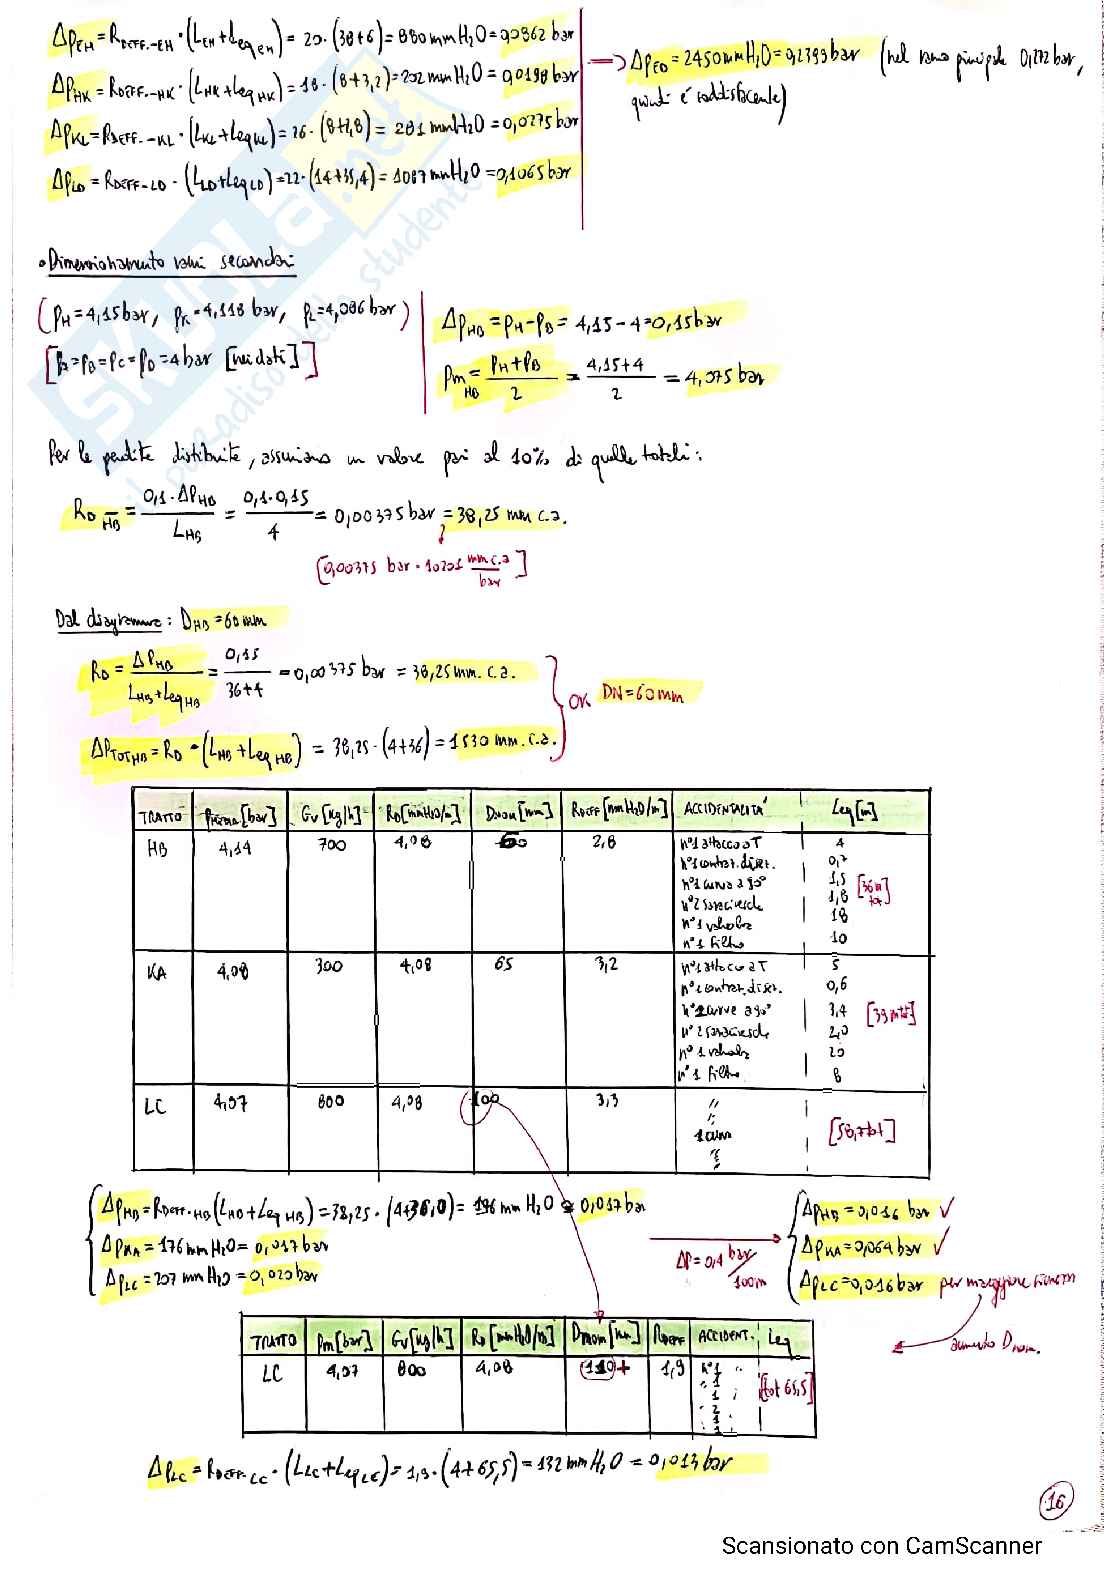 ΔpEH = RDEFF.-EH · (LEH+LeqEH) = 20 · (38+6) = 880 mm H2O = 0,0862 bar
ΔpHK = RDEFF.-HK · (LHK+LeqHK) = 18 · (8+3,2) = 202 mm H2O = 0,0198 bar
ΔpKL = RDEFF.-KL · (LKL+LeqKL) = 26 · (8+2,8) = 281 mm H2O = 0,0275 bar
ΔpLD = RDEFF-LD · (LLD+LeqLD) = 22 · (14+35,4) = 1087 mm H2O = 0,1065 bar
→ ΔpEO = 2450 mm H2O = 0,2399 bar (nel ramo principale 0,272 bar,
quindi è soddisfacente)
• Dimensionamento rami secondari
(pH = 4,15 bar, pK = 4,118 bar, pL = 4,086 bar)
[pA = pB = pC = pD = 4 bar [nei dati]]
ΔpHB = pH - pB = 4,15 - 4 = 0,15 bar
pm HB = pH + pB / 2 = 4,15 + 4 / 2 = 4,075 bar
Per le perdite distribuite, assumiamo un valore pari al 10% di quelle totali:
RD HB = 0,1 · ΔPHB / LHB = 0,1 · 0,15 / 4 = 0,00375 bar = 38,25 mm c.a.
[0,00375 bar · 10201 mm c.a / bar]
Dal diagramma: DHB = 60 mm
RD = ΔPHB / LHB + LeqHB = 0,15 / 36+4 = 0,00375 bar = 38,25 mm. c.a.
ΔPTOT HB = RD · (LHB + Leq HB) = 38,25 · (4+36) = 1530 mm. c.a.
OK DN = 60 mm
TRATTO [bar] Gv [kg/h] RD [mmH2O/m] Dnom [mm] RDEFF [mmH2O/m] ACCIDENTALITA' Leq [m]
HB 4,14 700 4,08 60 2,8 n°1 attacco a T 4
n°1 contrat. discr. 0,7
n°1 curva a 90° 1,5
n°2 saracinesche 1,8
n°1 valvola 18
n°1 filtro 10
[36 m tot]
KA 4,08 300 4,08 65 3,2 n°1 attacco a T 5
n°1 contrat. discr. 0,6
n°2 curve a 90° 3,4
n°2 saracinesche 2,0
n°1 valvola 20
n°1 filtro 8
[39 m tot]
LC 4,07 800 4,08 100 3,3 " [58,7 tot]
ΔpHB = RDEFF-HB (LHB + Leq HB) = 38,25 · (4+36,0) = 196 mm H2O ≅ 0,017 bar
ΔpKA = 176 mm H2O = 0,017 bar
ΔpLC = 207 mm H2O = 0,020 bar
ΔP = 0,4 bar/100m
ΔpHB = 0,016 bar ✓
ΔpKA = 0,064 bar ✓
ΔpLC = 0,016 bar per maggiore
aumento Dnom.
TRATTO Pm [bar] Gv [kg/h] RD [mmH2O/m] Dnom [mm] RDEFF ACCIDENT. Leq
LC 4,07 800 4,08 110 1,9 n°1 " [tot 65,5]
1
1
2
1
1
ΔpLC = RDEFF-LC · (LLC + LeqLC) = 1,9 · (4+65,5) = 132 mm H2O = 0,013 bar
16
Scansionato con CamScanner